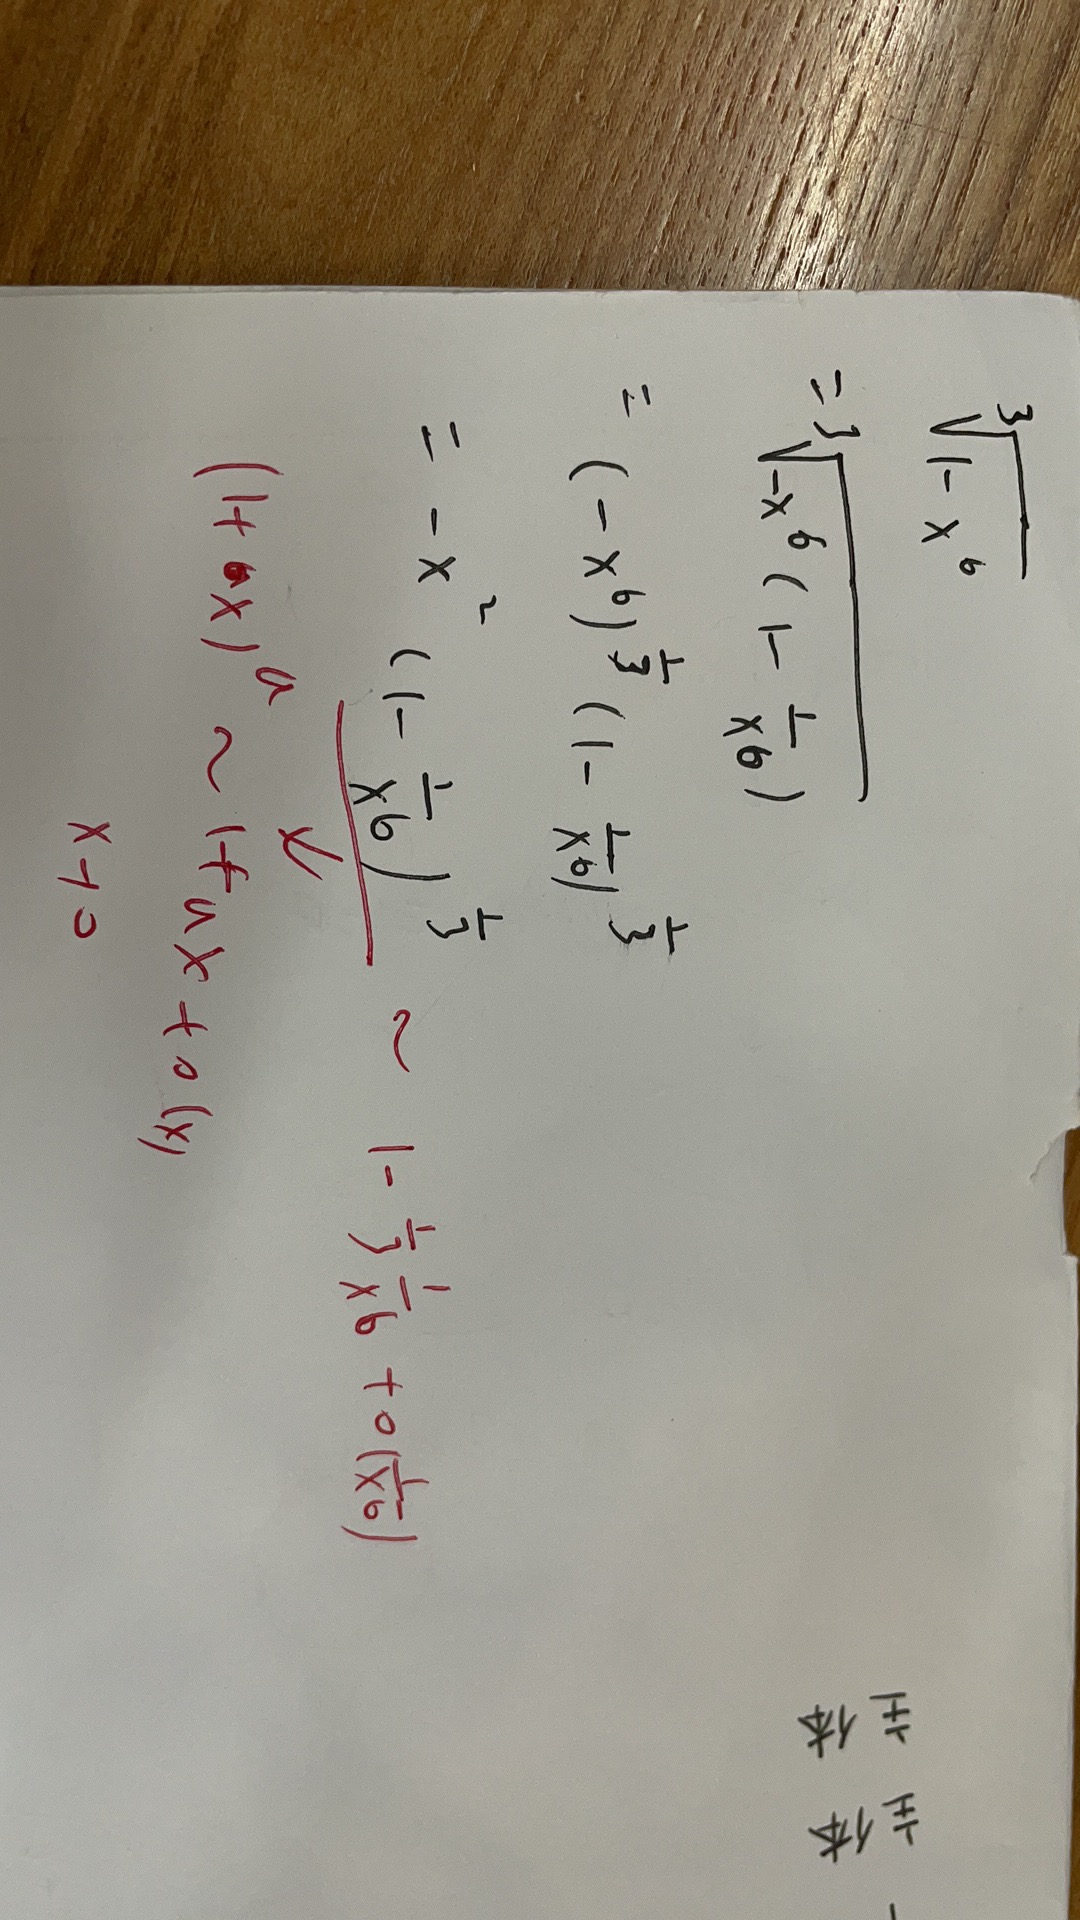 ∛(1-x⁶)
= ∛(-x⁶(1-1/x⁶))
= (-x⁶)^(1/3) (1-1/x⁶)^(1/3)
= -x² (1-1/x⁶)^(1/3) ~ 1-1/3 1/x⁶ + o(1/x⁶)
(1+x)^a ~ 1+ax+o(x)
x→0
主体
主体